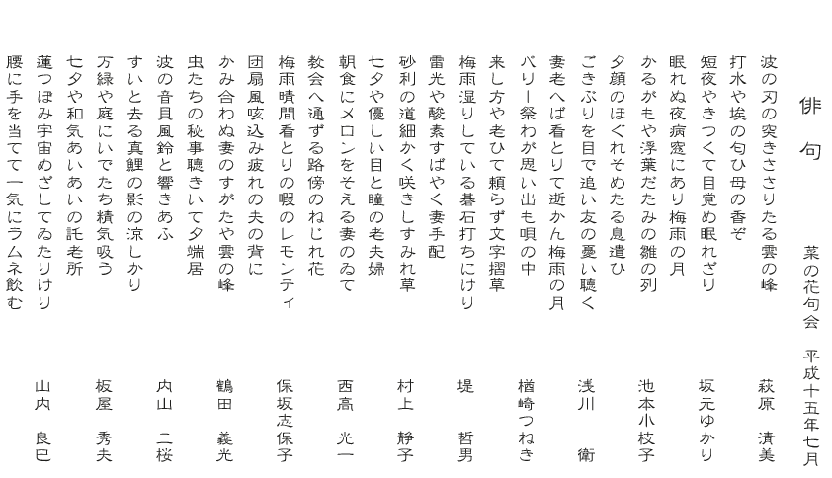 俳句
菜の花句会 平成十五年七月
波の刃の突きささりたる雲の峰 萩原 清美
打水や埃の匂ひ母の香ぞ
短夜やきつくて目覚め眠れざり 坂元ゆかり
眠れぬ夜病窓にあり梅雨の月
かるがもや浮葉だたみの雛の列 池本小枝子
夕顔のほぐれそめたる息遣ひ
ごきぶりを目で追い友の憂い聴く 浅川 衛
妻老へば看とりて逝かん梅雨の月
パリー祭わが思い出も唄の中 楢崎つねき
来し方や老ひて頼らず文字摺草
梅雨湿りしている碁石打ちにけり 堤 哲男
雷光や酸素すばやく妻手配
砂利の道細かく咲きしすみれ草 村上 静子
七夕や優しい目と瞳の老夫婦
朝食にメロンをそえる妻のゐて 西高 光一
教会へ通ずる路傍のねじれ花
梅雨晴間看とりの暇のレモンティ 保坂志保子
団扇風咳込み疲れの夫の背に
かみ合わぬ妻のすがたや雲の峰 鶴田 義光
虫たちの秘事聴きいて夕端居
波の音貝風鈴と響きあふ 内山 二桜
すいと去る真鯉の影の涼しかり
万緑や庭にいでたち精気吸う 板屋 秀夫
七夕や和気あいあいの託老所
蓮つぼみ宇宙めざしてゐたりけり 山内 良巳
腰に手を当てて一気にラムネ飲む